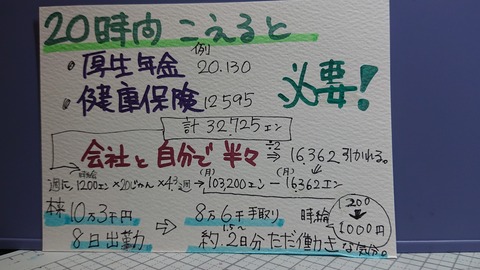 20時間 こえると
例
・厚生年金 20.130
・健康保険 12595
必要!
計 32,725エン
会社と自分で半々 ÷2 ⇒ 16,362 引かれる。
時給 (月) (月)
週に1200エン×20じかん×4.3週→103,200エン－16362エン
10万3千円 ⇨ 8万6千手取り
8日出勤 約1.5～2日分ただ働きな気分。
時給 1200
↓
1000円